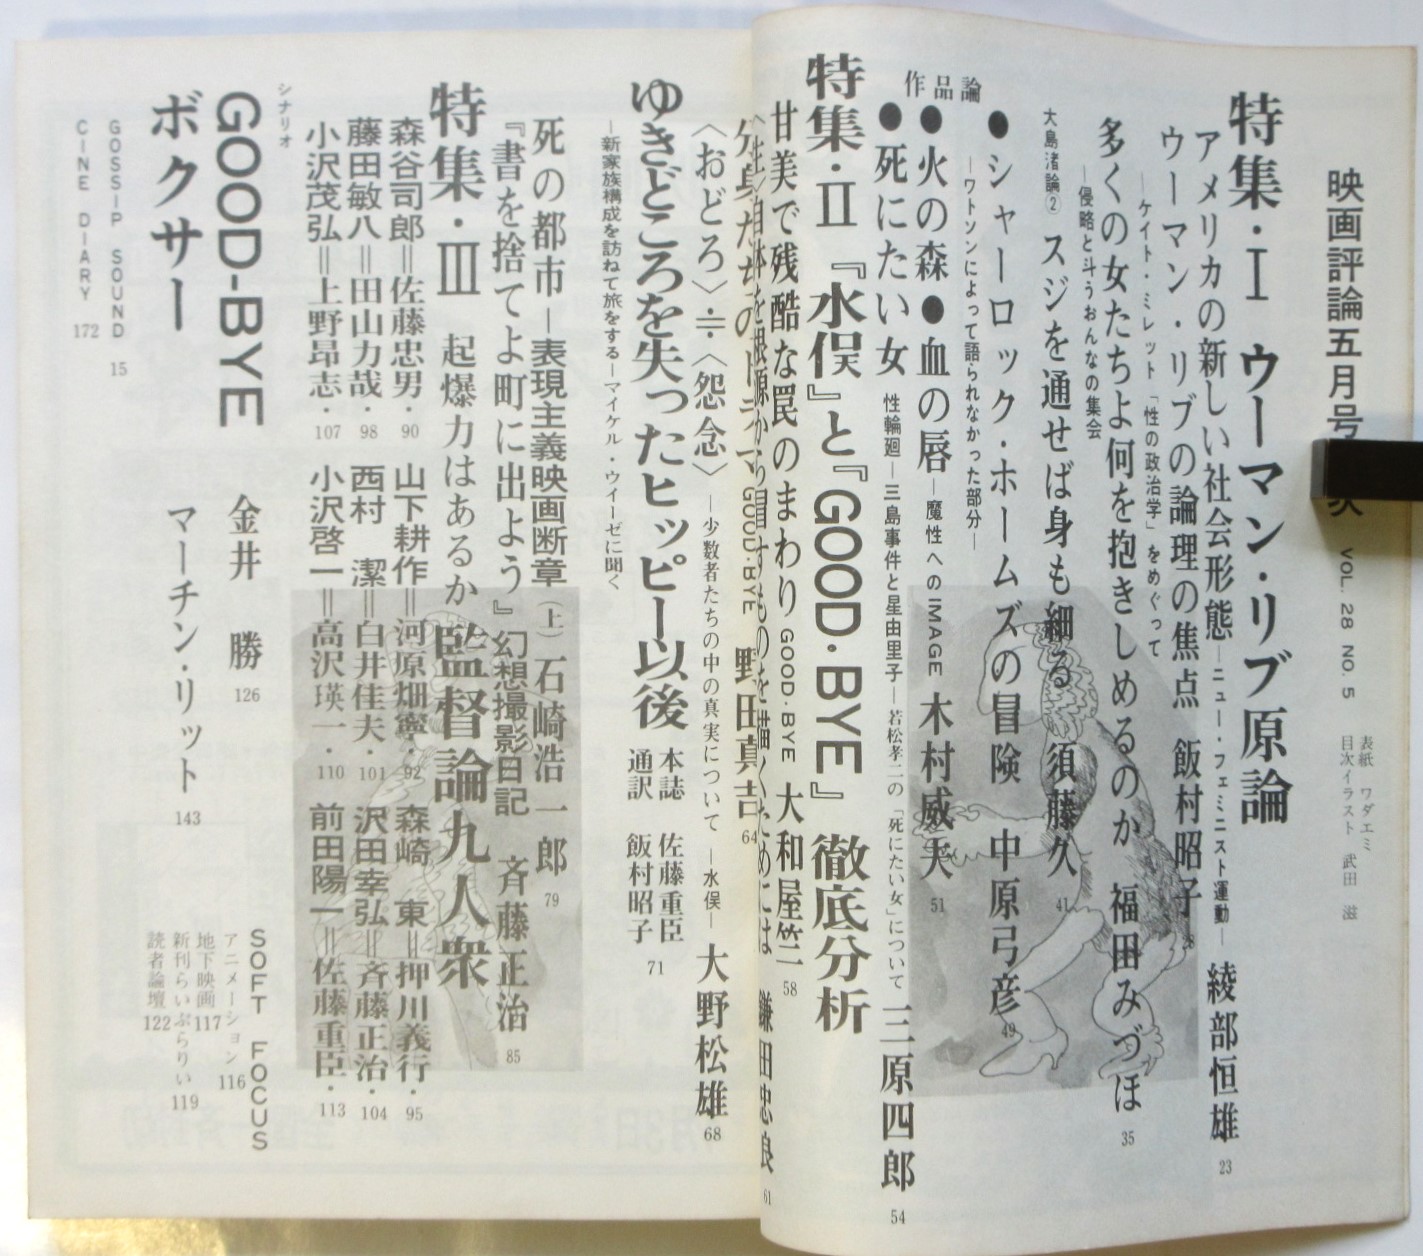 映画評論五月号
VOL. 28 NO. 5
表紙 ワダエミ
目次イラスト 武田 滋
特集・I ウーマン・リブ原論
アメリカの新しい社会形態 ―ニュー・フェミニスト運動― 綾部恒雄 23
ウーマン・リブの論理の焦点 飯村昭子
―ケイト・ミレット「性の政治学」をめぐって
多くの女たちよ何を抱きしめるのか 福田みづほ 35
―侵略と斗うおんなの集会
大島渚論② スジを通せば身も細る 須藤久 41
作品論
●シャーロック・ホームズの冒険 中原弓彦 49
―ワトソンによって語られなかった部分―
●火の森●血の唇 ―魔性へのIMAGE 木村威夫 51
●死にたい女 性輪廻―三島事件と星由里子―若松孝二の「死にたい女」について 三原四郎 54
特集・II 『水俣』と『GOOD・BYE』徹底分析
甘美で残酷な罠のまわり GOOD・BYE 大和屋竺 58
〈性〉自体を根源から冒すものを描くためには 鎌田忠良 61
分身たちのドラマ GOOD・BYE 野田真吉 64
〈おどろ〉≒〈怨念〉 ―少数者たちの中の真実について ―水俣― 大野松雄 68
ゆきどころを失ったヒッピー以後 本誌 佐藤重臣 通訳 飯村昭子 71
―新家族構成を訪ねて旅をする―マイケル・ウイーゼに聞く
死の都市―表現主義映画断章(上) 石崎浩一郎 79
『書を捨てよ町に出よう』幻想撮影日記 斉藤正治 85
特集・III 起爆力はあるか 監督論九人衆
森谷司郎=佐藤忠男・90 山下耕作=河原畑寧・92 森崎 東=押川義行・95
藤田敏八=田山力哉・98 西村 潔=白井佳夫・101 沢田幸弘=斉藤正治・104
小沢茂弘=上野昂志・107 小沢啓一=高沢瑛一・110 前田陽一=佐藤重臣・113
シナリオ
GOOD-BYE 金井 勝 126
ボクサー マーチン・リット 143
SOFT FOCUS
アニメーション 116
地下映画 117
新刊らいぶらりい 119
読者論壇 122
GOSSIP SOUND 15
CINE DIARY 172